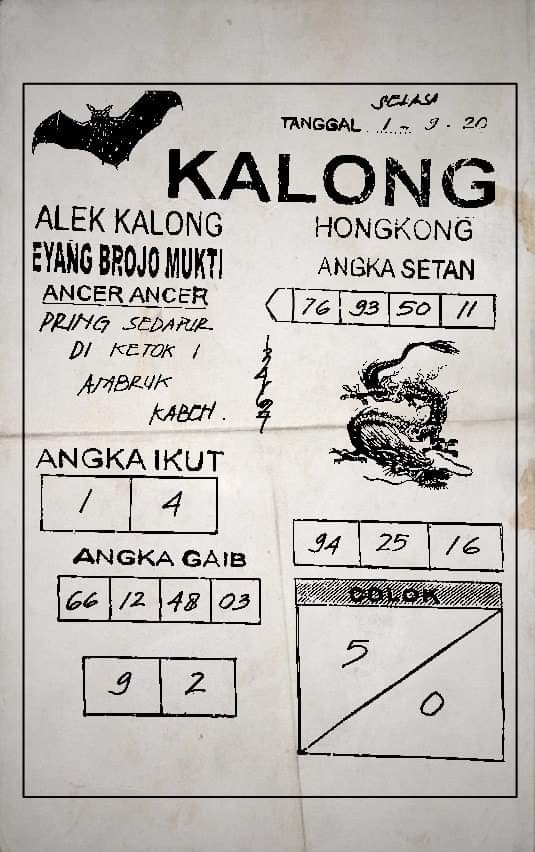 SELASA
TANGGAL 1 - 9 - 20
KALONG
ALEK KALONG
EYANG BROJO MUKTI
ANCER ANCER
PRING SEDAPUR
DI KETOK 1
AMBRUK
KABEH.
HONGKONG
ANGKA SETAN
76 93 50 11
ANGKA IKUT
1 4
ANGKA GAIB
66 12 48 03
9 2
94 25 16
COLOK
5
0